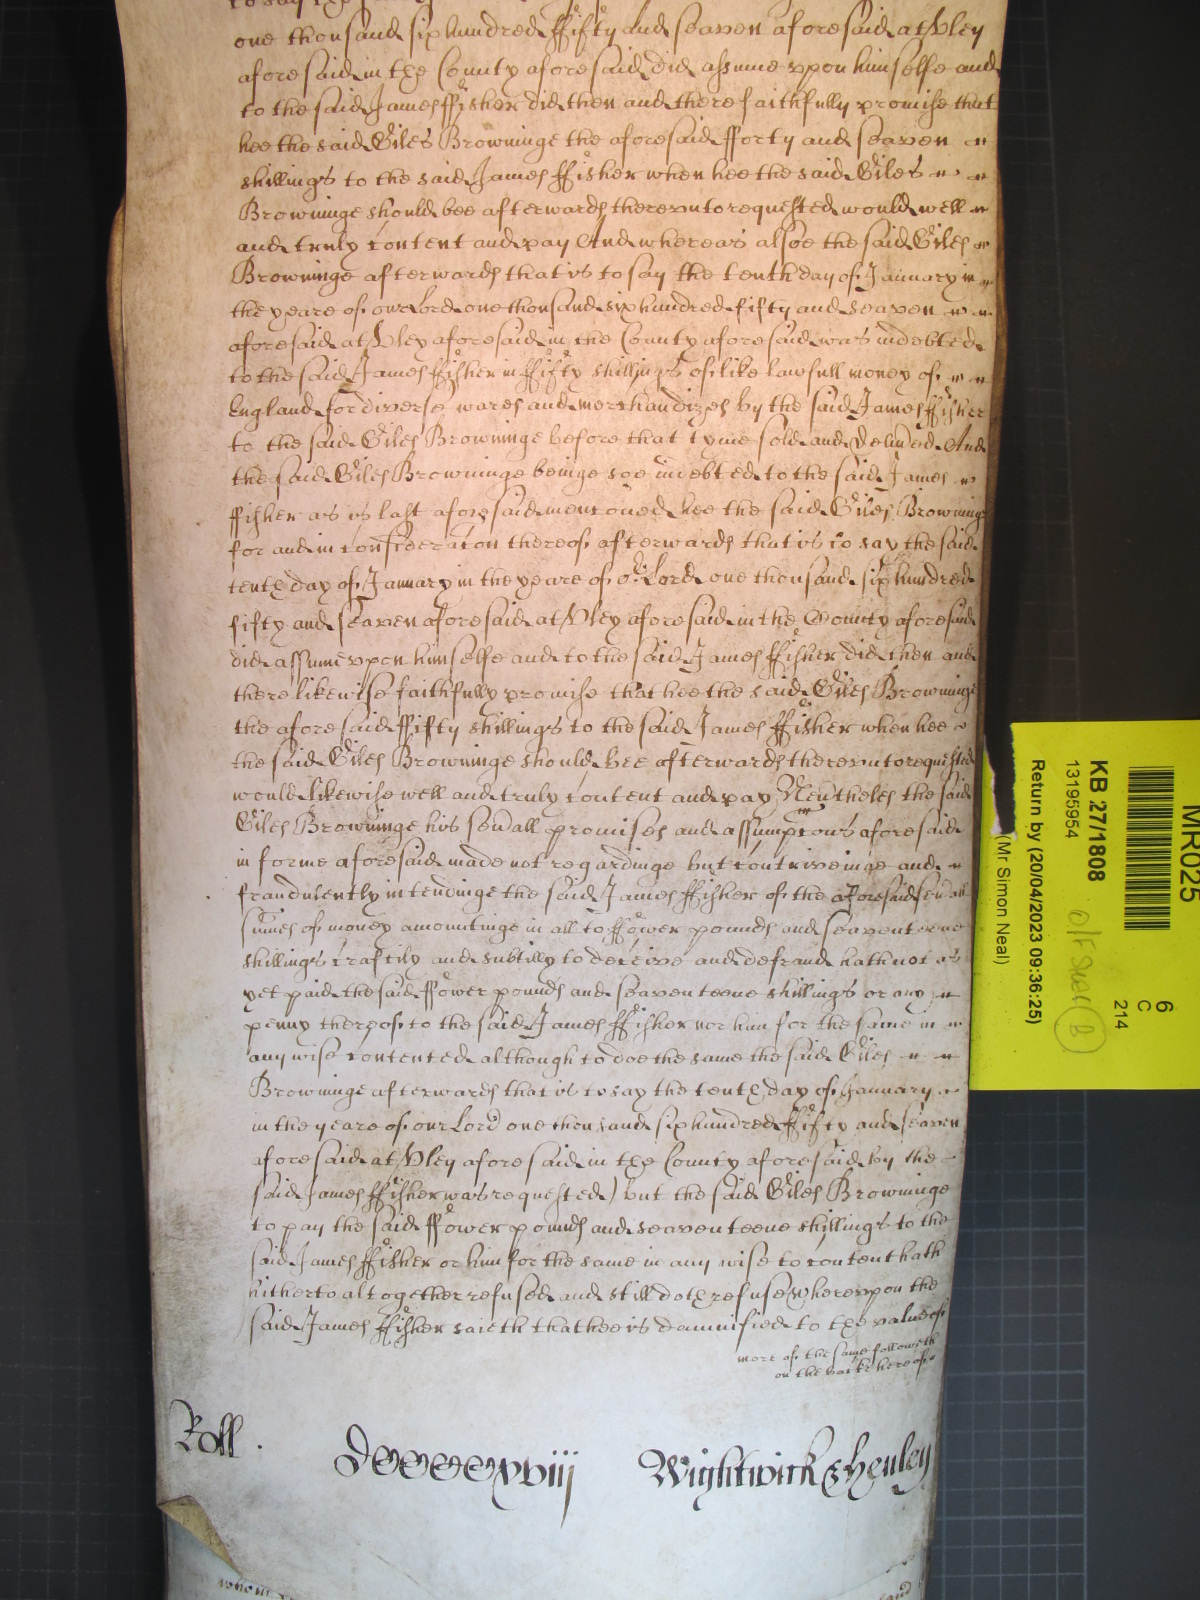 one thousand six hundred ffifty and seaven aforesaid at Vley
aforesaid in the County aforesaid did assume vpon himselfe and
to the said James ffisher did then and there faithfully promise that
hee the said Giles Browninge the aforesaid fforty and seaven
shillings to the said James ffisher when hee the said Giles
Browninge should bee afterwards therevnto requested would well
and truly content and pay And whereas alsoe the said Giles
Browninge afterwards that is to say the tenth day of January in
the yeare of our Lord one thousand six hundred fifty and seaven
aforesaid at Vley aforesaid in the County aforesaid was indebted
to the said James ffisher in ffifty shillings of like lawfull money of
England for diverse wares and merchandizes by the said James ffisher
to the said Giles Browninge before that tyme sold and deliu'ed And
the said Giles Browninge beinge soe indebted to the said James
ffisher as is last aforesaid menc'oned hee the said Giles Browninge
for and in considerac'on thereof afterwards that is to say the said
tenth day of January in the yeare of or Lord one thousand six hundred
fifty and seaven aforesaid at Vley aforesaid in the County aforesaid
did assume vpon himselfe and to the said James ffisher did then and
there likewise faithfully promise that hee the said Giles Browninge
the aforesaid ffifty shillings to the said James ffisher when hee
the said Giles Browninge should bee afterwards therevnto requested
would likewise well and truly content and pay Neu'theles the said
Giles Browninge his seu'all promises and assumptions aforesaid
in forme aforesaid made not regardinge but contriveinge and
fraudulently intendinge the said James ffisher of the aforesaid seu'all
sum'es of money amountinge in all to ffower pounds and seaventeene
shillings craftily and subtilly to deceive and defraud hath not as
yet paid the said ffower pounds and seaventeene shillings or any
penny thereof to the said James ffisher nor him for the same in
any wise contented although to doe the same the said Giles
Browninge afterwards that is to say the tenth day of January
in the yeare of our Lord one thousand six hundred ffifty and seaven
aforesaid at Vley aforesaid in the County aforesaid by the
said James ffisher was requested) but the said Giles Browninge
to pay the said ffower pounds and seaventeene shillings to the
said James ffisher or him for the same in any wise to content hath
hitherto altogether refused and still doth refuse Wherevpon the
said James ffisher saieth that hee is damnified to the value of
more of the same followeth
on the backe hereof
Roll .
DCCCCxviij
Wightwick & Henley
whom
MR025
6
C
214
KB 27/1808
13195954
Return by (20/04/2023 09:36:25)
(Mr Simon Neal)